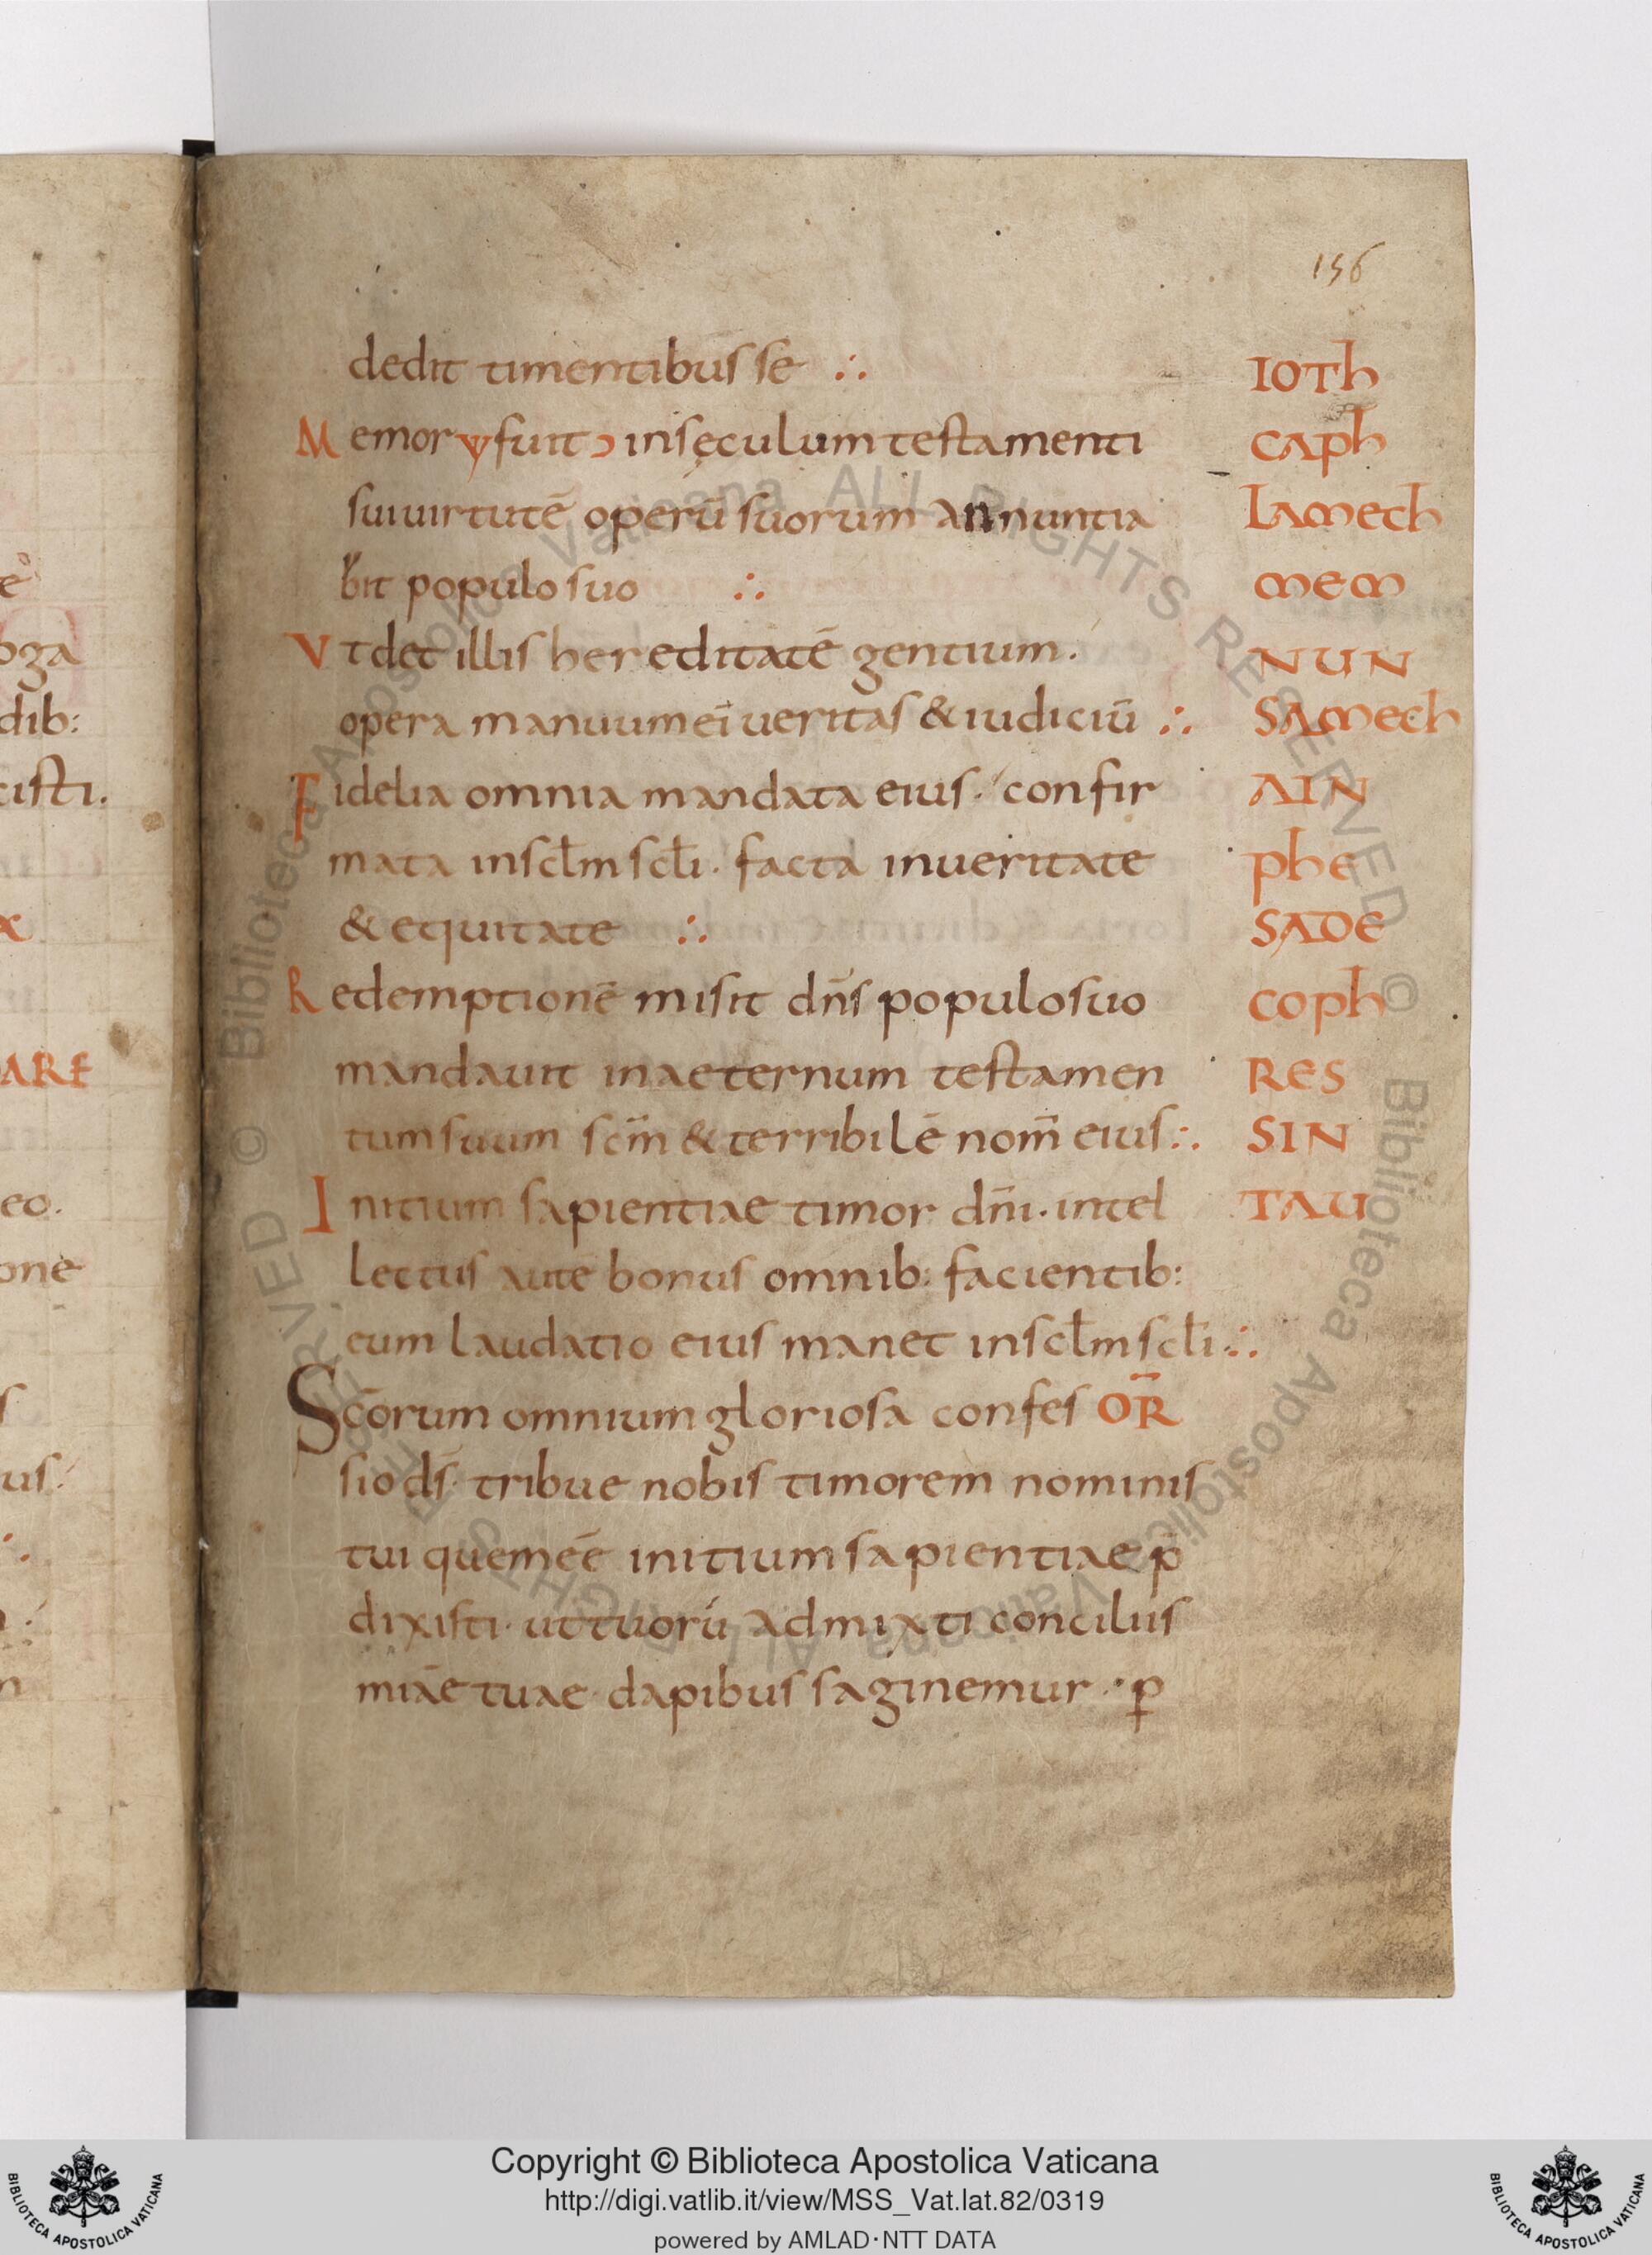 156
dedit timentibus se ∴ IOTh
Memor ѱ fuit ɔ in sęculum testamenti CAph
sui uirtutē operū suorum annuntia LAMech
bit populo suo ∴ MEM
Vt det illis hereditatē gentium. NUN
opera manuum ei ueritas & iudiciū ∴ SAMech
Fidelia omnia mandata eius. confir AIN
mata in scl̄m scl̄i. facta in ueritate phe
& equitate ∴ SADE
Redemptionē misit dn̄s populo suo coph
mandauit in aeternum testamen RES
tum suum sc̄m & terribilē nom̄ eius ∴ SIN
Initium sapientiae timor dn̄i. intel TAU
lectus autē bonus omnib: facientib:
eum laudatio eius manet in scl̄m scl̄i ∴
Sc̄orum omnium gloriosa confes OR̄
sio ds̄ tribue nobis timorem nominis
tui quem eē initium sapientiae p̄
dixisti. ut tuorū admixti conciliis
miāe tuae dapibus saginemur . ꝑ
e
oga
dib:
cisti.
x
ARE
eo.
one
s
us.
n
BIBLIOTECA APOSTOLICA VATICANA
Copyright © Biblioteca Apostolica Vaticana
http://digi.vatlib.it/view/MSS_Vat.lat.82/0319
powered by AMLAD·NTT DATA
BIBLIOTECA APOSTOLICA VATICANA